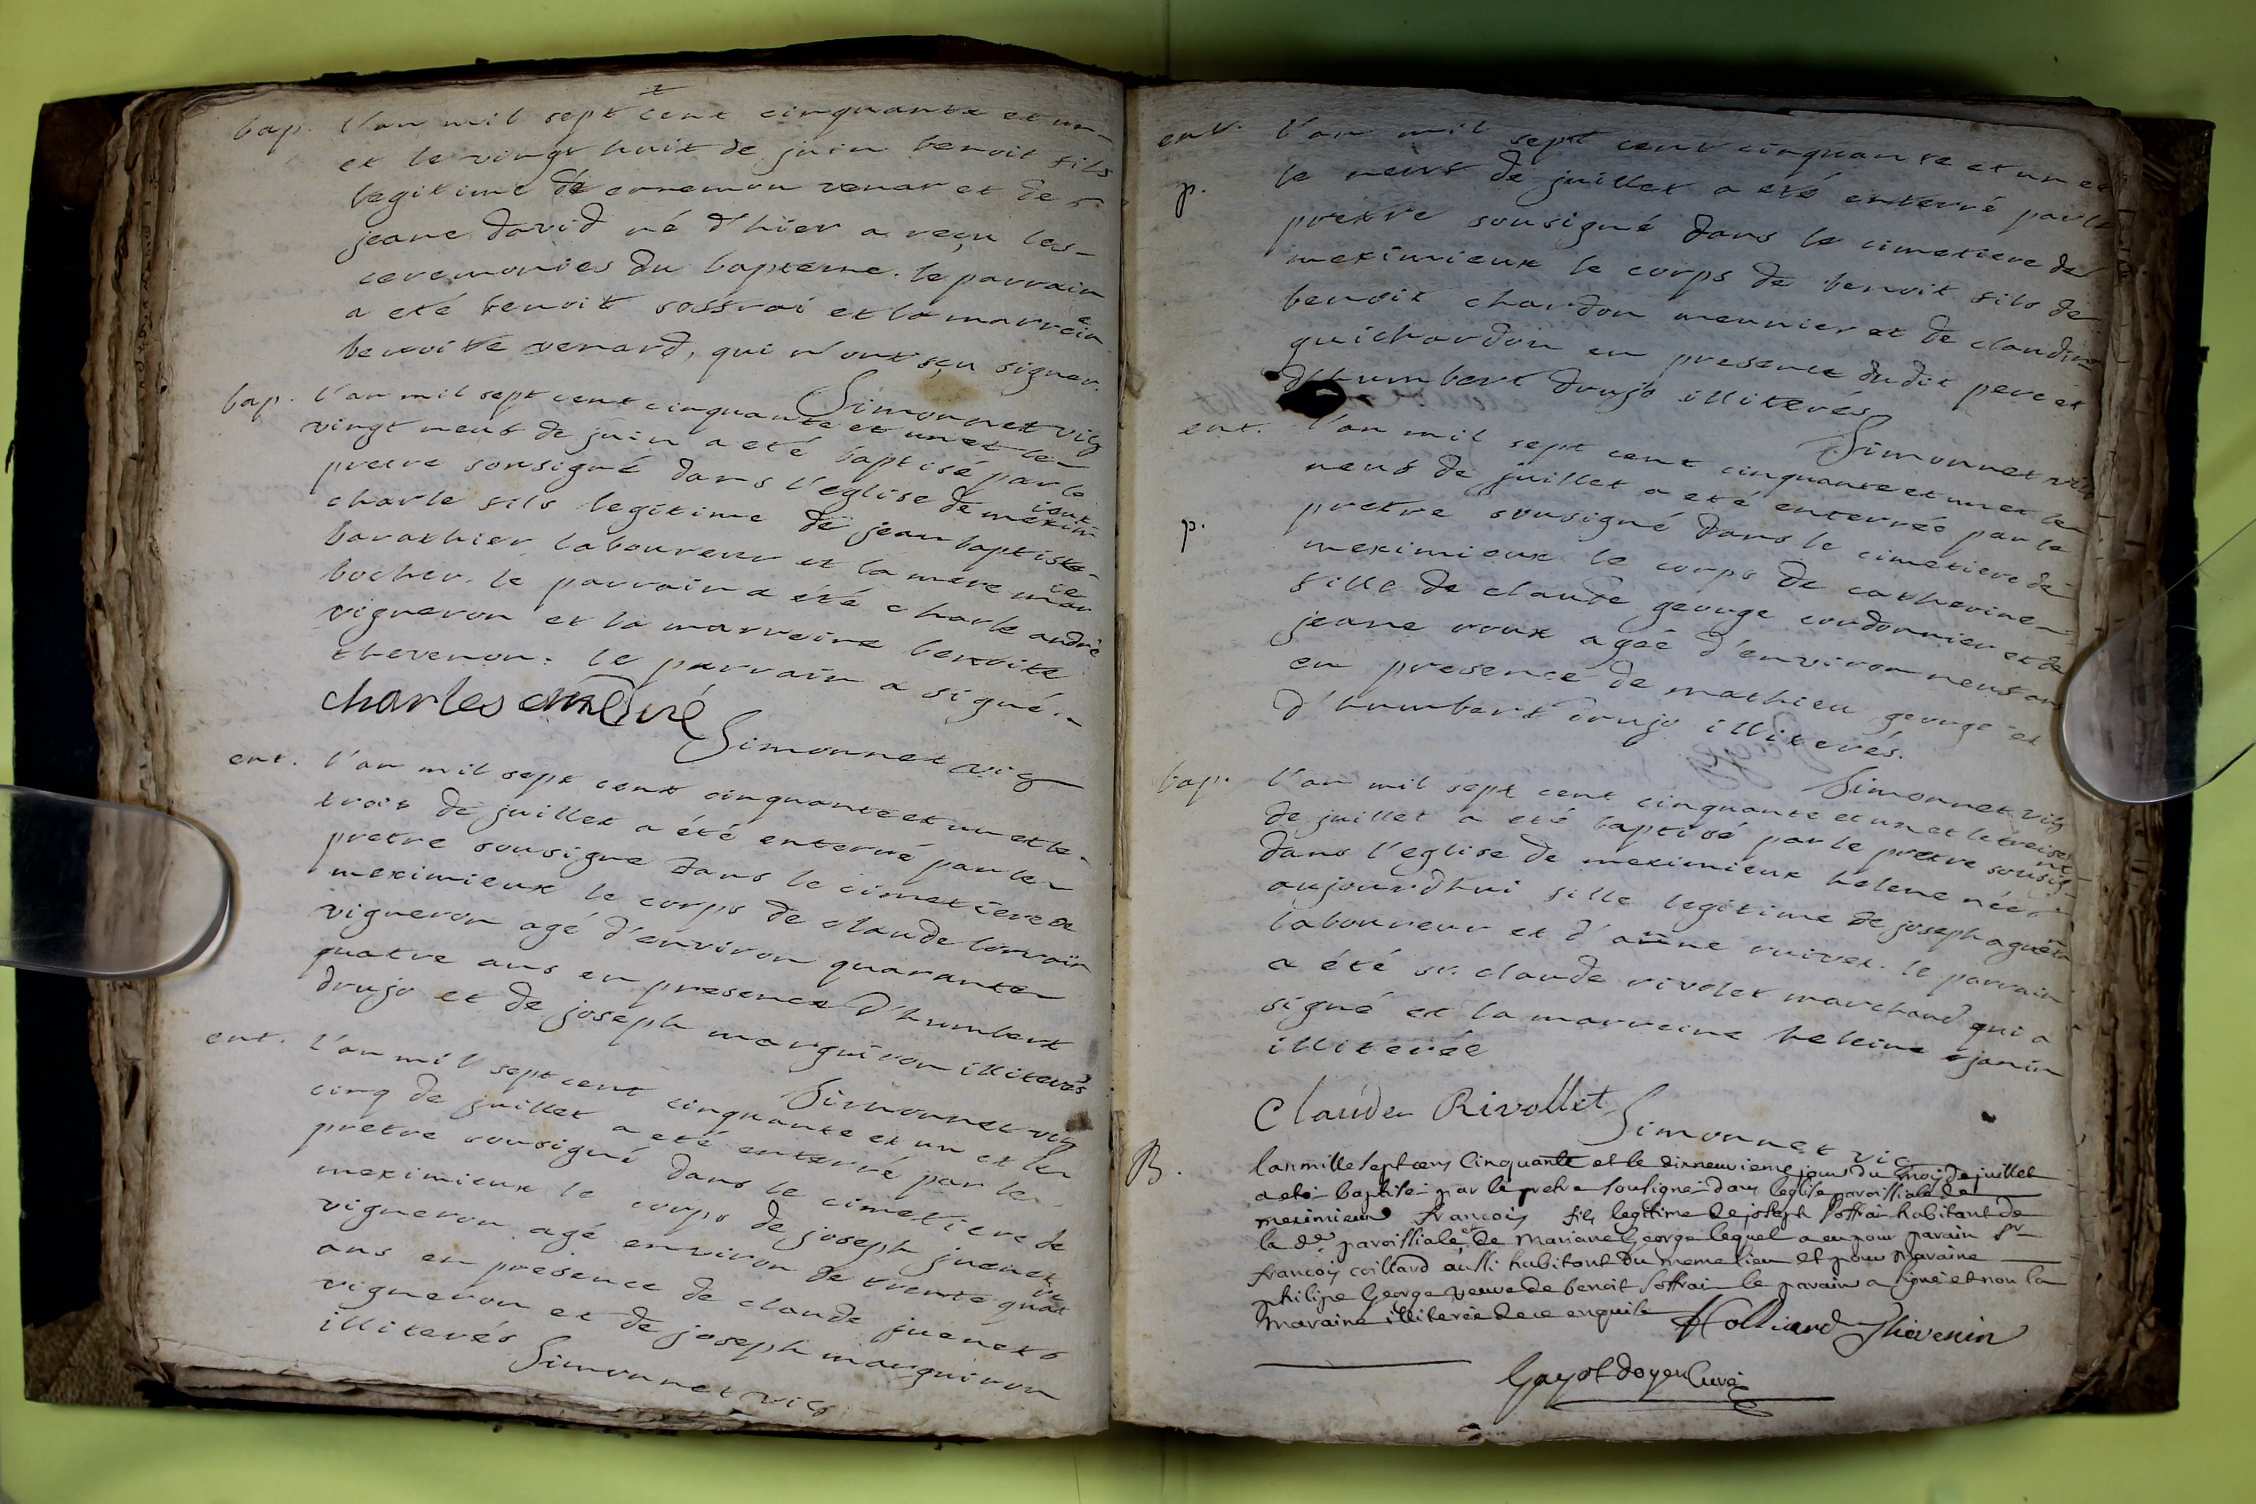 bap. l'an mil sept cent cinquante et un
et le vingt huit de juin benoit fils
legitime de ennemon venar et de
jeane david né d'hier a reçu les
ceremonies du bapteme. le parrain
a eté benoit soffrai et la marreine
benoite venard, qui n'ont sçu signer.
Simonnet vic
bap. l'an mil sept cent cinquante et un et le
vingt neuf de juin a eté baptisé par le
pretre sousigné dans l'eglise de meximieux
charle fils legitime de jean baptiste
barathier laboureur et la mere marie
bocher. le parrain a été charle andrie
vigneron et la marreine benoite
thevenon. le parrain a signé.
charles
Simonnet vic
ent. l'an mil sept cent cinquante et un et le
trois de juillet a été enterré par le
pretre sousigne dans le cimetiere de
meximieux le corps de claude lorrain
vigneron agé d'environ quarante
quatre ans en presence d'humbert
drujo et de joseph marguiron illiterés
Simonnet vic
ent. l'an mil sept cent cinquante et un et le
cinq de juillet a eté enterré par le
pretre sousigné dans le cimetiere de
meximieux le corps de joseph juenet
vigneron agé environ de trente quatre
ans en presence de claude juenet
vigneron et de joseph marguiron
illiterés Simonnet vic
ent. l'an mil sept cent cinquante et un et
le neuf de juillet a eté enterré par le
p. pretre sousigné dans le cimetiere de
meximieux le corps de benoit fils de
benoit chardon meunier et de claudine
guichardon en presence dudit pere et
d'humbert drujo illiterés
Simonnet vic
ent. l'an mil sept cent cinquante et un et le
neuf de juillet a eté enterrée par le
p. pretre sousigné dans le cimetiere de
meximieux le corps de catherine
fille de claude george cordonnier et de
jeane roux agée d'environ neuf ans
en presence de mathieu george et
d'humbert drujo illiterés.
Simonnet vic
bap. l'an mil sept cent cinquante et un et le treise
de juillet a eté baptisé par le pretre sousigné
dans l'eglise de meximieux helene née
aujourd'hui fille legitime de joseph
laboureur et d'anne ruivet. le parrain
a été sr. claude rivolet marchand qui a
signé et la marreine heleine janin
illiterée
Claude Rivollet Simonnet vic
B. lan mille sept cens Cinquante et le dixneuvieme jour du mois de juillet
a eté baptisé par le pretre sousigné dans leglise paroissiale de
meximieux francois fils legitime de joseph soffrai habitant de
la de paroissiale et de Mariane George lequel a eu pour parain sr
francois coillard aussi habitant du meme lieu et pour Maraine
philipe George veuve de benoit soffrai le parain a signé et non la
Maraine illiterée de ce enquise Thevenin
Gayot doyen Curé